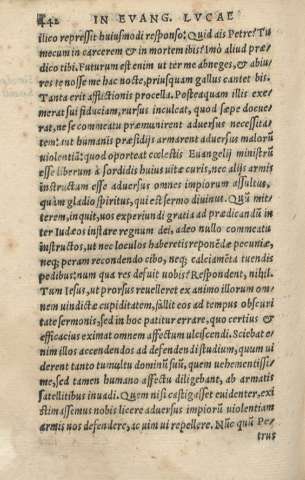 442 IN EVANG. LVCAE
ilico repressit huiusmodi responso: Quid ais Petre? Tu
mecum in carcerem & in mortem ibis? Imò aliud præ⸗
dico tibi. Futurum est enim ut ter me abneges, & abiu⸗
res te nosse me hac nocte, priusquam gallus cantet bis.
Tanta erit afflictionis procella. Posteaquam illis exe⸗
merat sui fiduciam, rursus inculcat, quod sæpe docue⸗
rat, ne se commeatu præmunirent aduersus necessita⸗
tem: aut humanis præsidijs armarent aduersus malorũ
violentiã: quod oporteat cœlestis Euangelij ministrũ
esse liberum à sordidis huius uitæ curis, nec alijs armis
instructam esse aduersus omnes impiorum assultus,
quàm gladio spiritus, qui est sermo diuinus. Quũ mit⸗
terem, inquit, uos experiundi gratia ad prædicandũ in
ter Iudæos instare regnum dei, adeo nullo commeatu
instructos, ut nec loculos haberetis reponẽdæ pecuniæ,
neq; peram recondendo cibo, neq; calciamẽta tuendis
pedibus: num qua res defuit uobis? Respondent, nihil.
Tum Iesus, ut prorsus reuelleret ex animo illorum om⸗
nem uindictæ cupiditatem, fallit eos ad tempus obscuri
tate sermonis, sed in hoc patitur errare, quo certius &
efficacius eximat omnem affectum ulciscendi. Sciebat e⸗
nim illos accendendos ad defendendi studium, quum ui
derent tanto tumultu dominũ suũ, quem uehementissi⸗
me, sed tamen humano affectu diligebant, ab armatis
satellitibus inuadi. Quem nisi castigasset euidenter, exi
stimassemus nobis licere aduersus impiorũ uiolentiam
armis nos defendere, ac uim ui repellere. Nũc quũ Pe⸗
trus